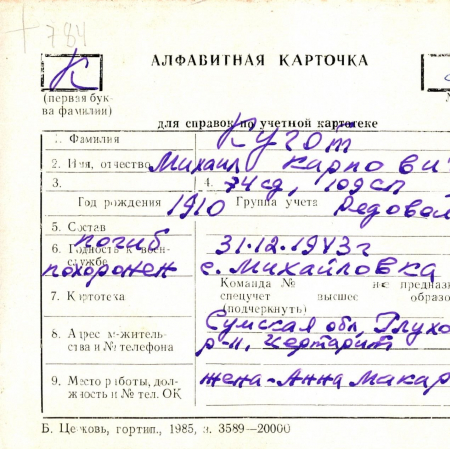 784
К
АЛФАВИТНАЯ КАРТОЧКА
(первая бук-
ва фамилии)
для справок по учетной картотеке
1. Фамилия Кугот
2. Имя, отчество Михаил Карпови
3. 4. 74 сд, 109 сп
Год рождения 1910 Группа учета Рядовой
5. Состав
погиб 31.12.1943г
6. Годность к воен-
службе
похоронен с. Михайловка
Команда № не предназ
7. Картотека спецучет высшее образо
(подчеркнуть)
Сумская обл, Глухо
8. Адрес м-житель-
ства и № телефона
р-н,
жена - Анна Макар
9. Место работы, дол-
жность и № тел. ОК
Б. Церковь, гортип., 1985, з. 3589—20000